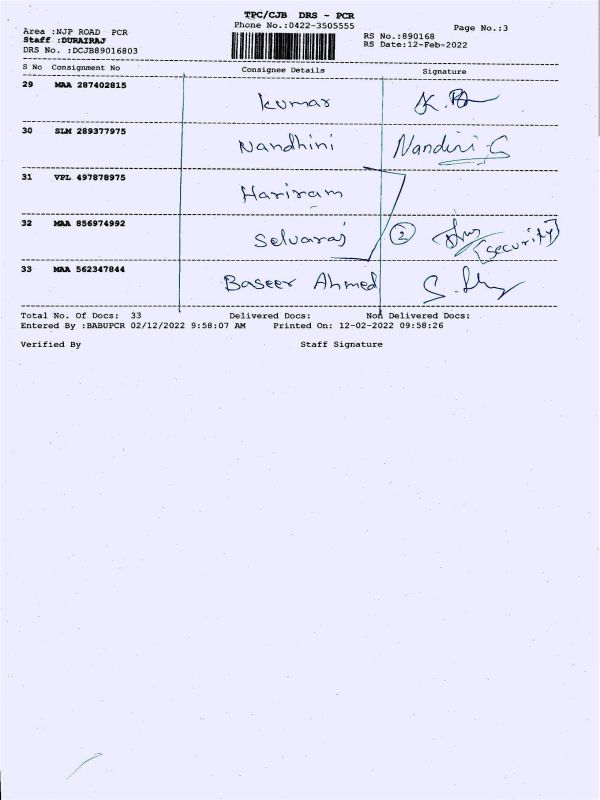 TPC/CJB DRS - PCR
Phone No.:0422-3505555
Page No.:3
Area :NJP ROAD PCR
Staff :DURAIRAJ
DRS No. :DCJB89016803
RS No.:890168
RS Date:12-Feb-2022
S No Consignment No Consignee Details Signature
29 MAA 287402815 Kumar
30 SLM 289377975 Nandhini Nandini G
31 VPL 497878975 Hariram
32 MAA 856974992 Selvaraj 2 (security)
33 MAA 562347844 Baseer Ahmed
Total No. Of Docs: 33 Delivered Docs: Non Delivered Docs:
Entered By :BABUPCR 02/12/2022 9:58:07 AM Printed On: 12-02-2022 09:58:26
Verified By Staff Signature